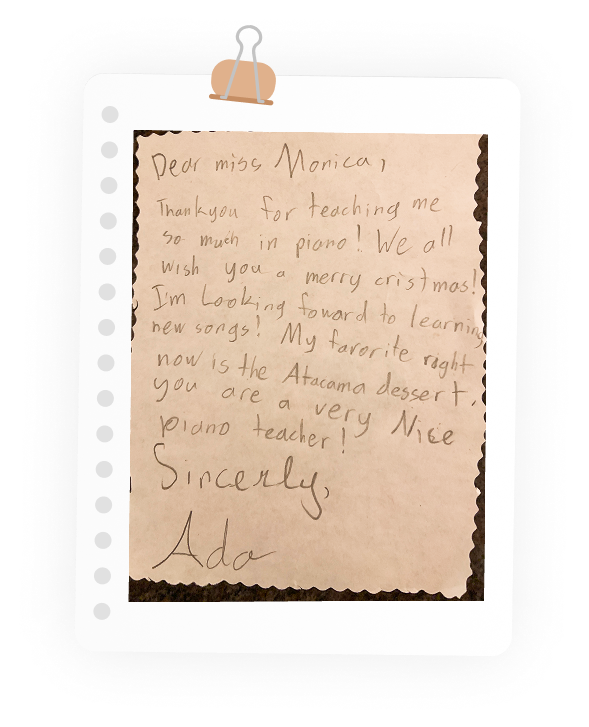 Dear miss Monica,
Thankyou for teaching me
so much in piano! We all
wish you a merry cristmas!
I'm Looking foward to learning
new songs! My favorite right
now is the Atacama dessert.
you are a very Nice
piano teacher!
Sincerly,
Ada